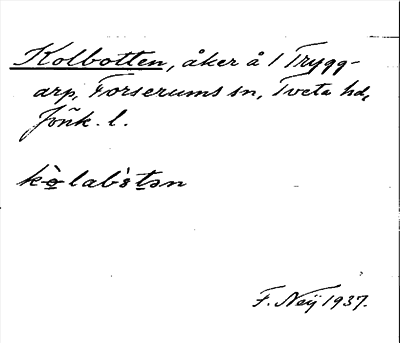 Kolbotten, åker å 1 Trygg-
arp, Forserums sn, Tveta hd,
Jönk. l.
kò̱labò̱tən
F. Neÿ 1937.